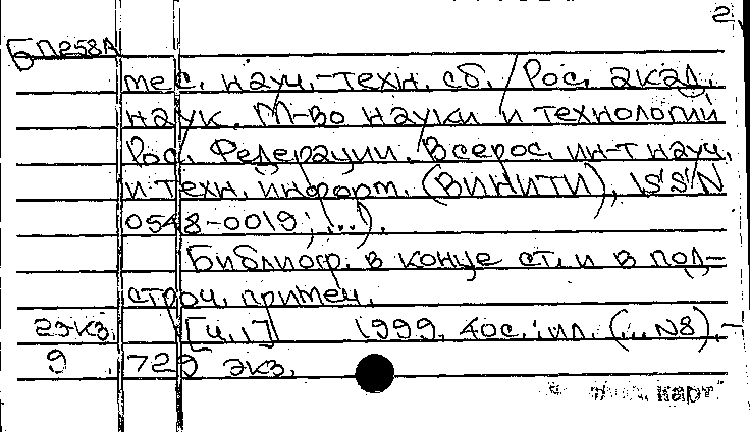 2
БП258А
тес. науч.-техн. сб. / Рос. акад.
наук, М-во науки и технологий
Рос. Федерации, Всерос. ин-т науч.
и техн. информ. (ВИНИТИ), ISSN
0548-0019; ...).
Библиогр. в конце ст. и в под-
строч. примеч.
2экз. [Ч.1] 1999. 40с.: ил. (... N8). -
9 729 экз.
карт